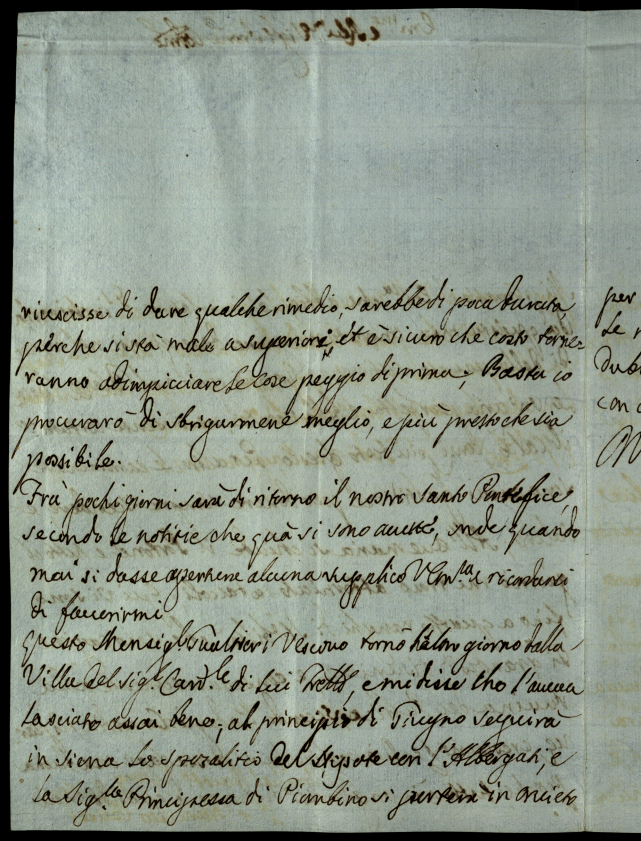 riuscisse di dare qualche rimedio, sarebbe di poca durata,
perche si stà male a superiori, et è sicuro che costo torne=
ranno ad impicciare le cose peggio di prima; Basta io
procurarò di sbrigarmene meglio, e più presto che sia
possibile.
Frà pochi giorni sarà di ritorno il nostro Santo Pontefice,
secondo le notitie che quà si sono avute, onde quando
mai si dasse apertura alcuna supplico V Em.za a ricordarsi
di favorirmi
Questo Monsig.r Gualtieri Vescovo tornò l'altro giorno dalla
Villa del Sig.r Card.le di lui Fratello, e mi disse che l'aveva
lasciato assai bene; al principio di Giugno seguirà
in Siena lo sposalitio del Nipote con l'Albergati, e
la Sig.ra Principessa di Piombino si porterà in Orvieto
per
Le
Dub
con